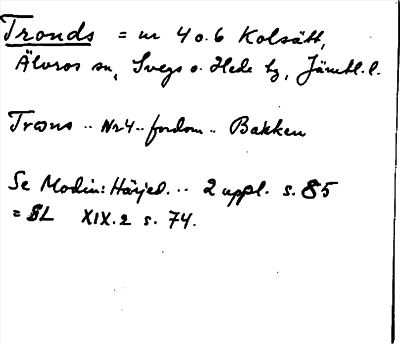 Tronds = nr 4 o. 6 Kolsätt,
Älvros sn, Svegs o. Hede tg, Jämtl. l.
Trons .. Nr 4 .. fordom .. Bakken
Se Modin: Härjed. .. 2 uppl. s. 85
= SL XIX.2 s. 74.